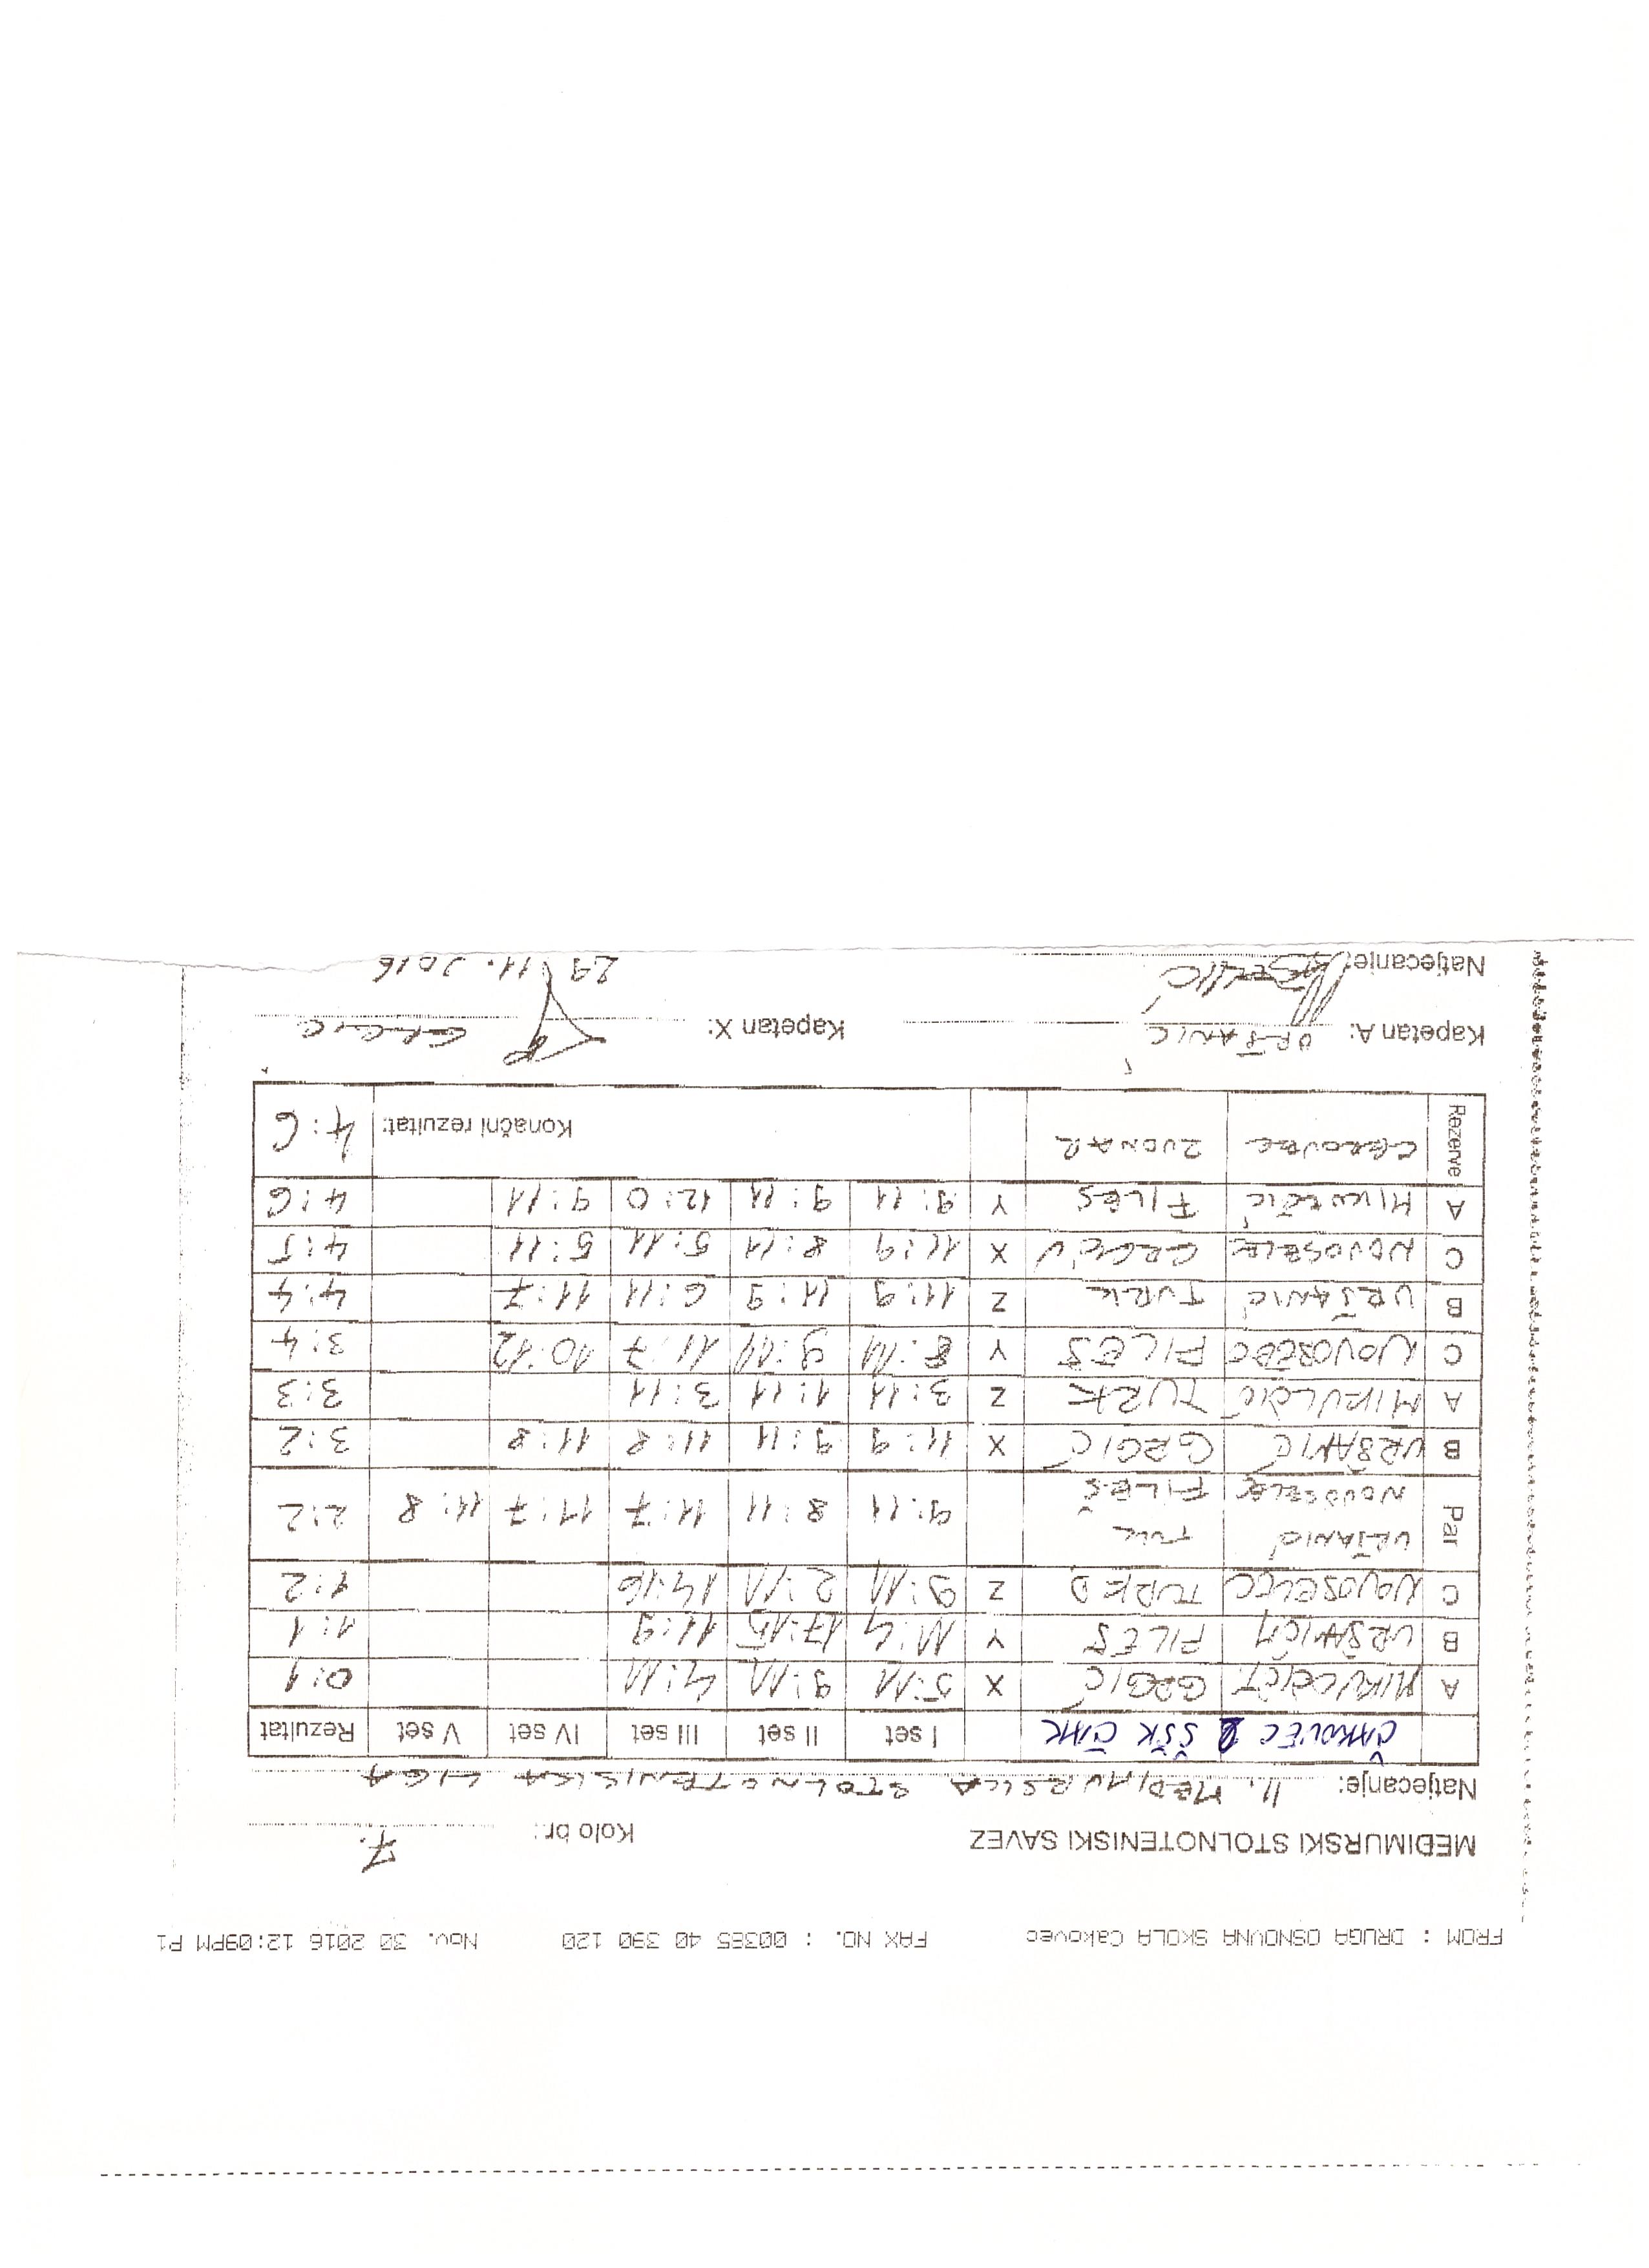 FROM : DRUGA OSNOVNA SKOLA Cakovec FAX NO. : 00385 40 390 120 Nov. 30 2016 12:09PM P1
MEĐIMURSKI STOLNOTENISKI SAVEZ Kolo br.: 7.
Natjecanje: II. MEĐIMURSKA STOLNOTENISKA LIGA
ČAKOVEC ŠŠK I set II set III set IV set V set Rezultat
A GRGIĆ X 5:11 9:11 4:11 0:1
B FILEŠ Y 11:4 17:15 11:9 1:1
C NOVOSELEC TURK D Z 9:11 2:11 14:16 1:2
Par URŠANIĆ
NOVOSELE FILEŠ 9:11 8:11 11:7 11:7 11:8 2:2
B URŠANIĆ GRGIĆ X 11:9 9:11 11:8 11:8 3:2
A MIKULČIĆ TURK Z 3:11 1:11 3:11 3:3
C FILEŠ Y 8:11 9:11 11:7 10:12 3:4
B URŠANIĆ TURK Z 11:9 11:9 6:11 11:7 4:4
C NOVOSELE X 11:9 8:11 5:11 5:11 4:5
A FILEŠ Y 9:11 9:11 12:0 9:11 4:6
Rezerve ZVONAR Konačni rezultat: 4:6
Kapetan A: URŠANIĆ Kapetan X: GRGIĆ
Natjecanje: 29.11.2016